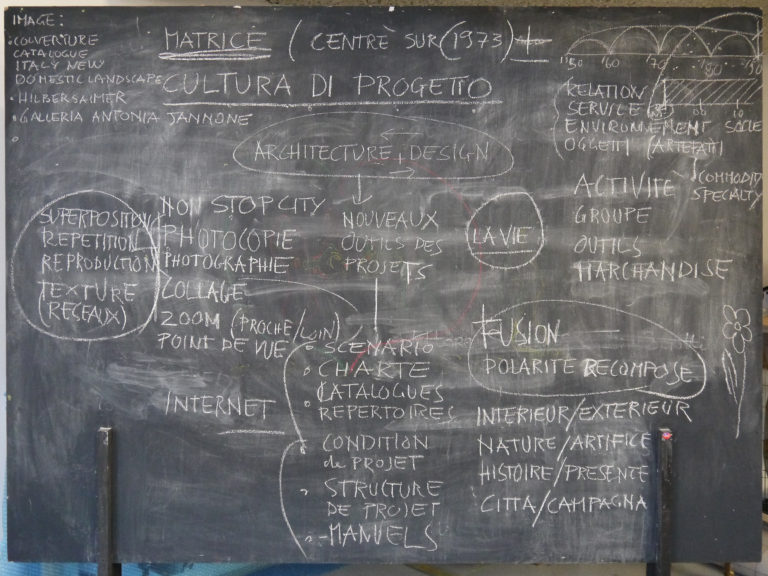 IMAGE:
COUVERTURE
CATALOGUE
ITALY NEW
DOMESTIC LANDSCAPE
HILBERSAIMER
GALLERIA ANTONIA JANNONE
MATRICE (CENTRE SUR (1973)
CULTURA DI PROGETTO
ARCHITECTURE + DESIGN
'60 '70 '80
RELATION
SERVICE
ENVIRONNEMENT SOCLE
OGGETTI (ARTEFATTI)
00 10
COMMODITY
SPECIALTY
ACTIVITE
GROUPE
OUTILS
MARCHANDISE
SUPERPOSITION
REPETITION
REPRODUCTION
TEXTURE
(RESEAUX)
NON STOP CITY
PHOTOCOPIE
PHOTOGRAPHIE
COLLAGE
ZOOM (PROCHE/LOIN)
POINT DE VUE
INTERNET
NOUVEAUX
OUTILS DES
PROJETS
SCENARIO
CHARTE
CATALOGUES
REPERTOIRES
CONDITION
de PROJET
STRUCTURE
DE PROJET
MANUELS
LA VIE
FUSION
POLARITE RECOMPOSE
INTERIEUR/EXTERIEUR
NATURE/ARTIFICE
HISTOIRE/PRESENTE
CITTA/CAMPAGNA